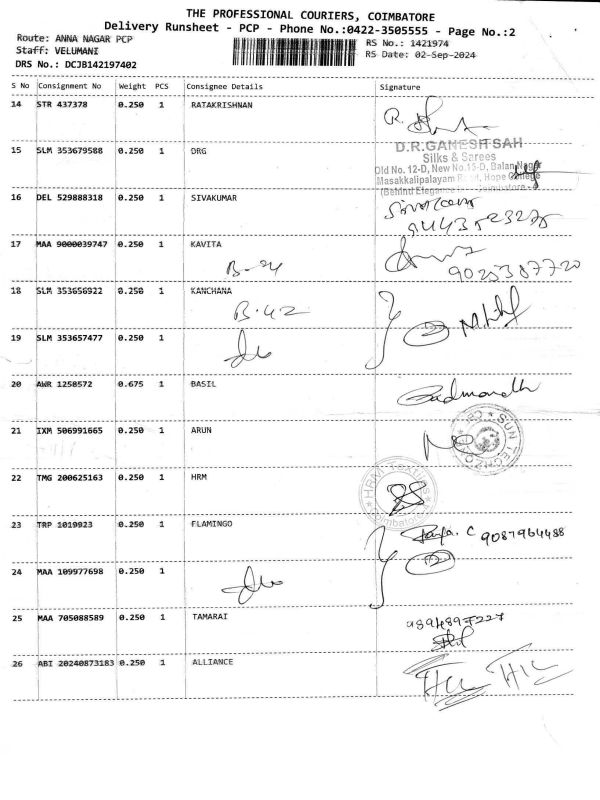 THE PROFESSIONAL COURIERS, COIMBATORE
Delivery Runsheet - PCP - Phone No.:0422-3505555 - Page No.:2
Route: ANNA NAGAR PCP
RS No.: 1421974
Staff: VELUMANI
RS Date: 02-Sep-2024
DRS No.: DCJB142197402
S No Consignment No Weight PCS Consignee Details Signature
14 STR 437378 0.250 1 RATAKRISHNAN
15 SLM 353679588 0.250 1 DRG
D.R.GANESH SAH
Silks & Sarees
Old No. 12-D, New No.13-D, Balan Nagar
Masakkalipalayam Hope College
(Behind
16 DEL 529888318 0.250 1 SIVAKUMAR
17 MAA 9000039747 0.250 1 KAVITA
9025387720
B-24
18 SLM 353656922 0.250 1 KANCHANA
B-42
2
19 SLM 353657477 0.250 1
do
20 AWR 1258572 0.675 1 BASIL
21 IXM 506991665 0.250 1 ARUN
22 TMG 200625163 0.250 1 HRM
HRM Textiles
Coimbatore
23 TRP 1019923 0.250 1 FLAMINGO
9087964488
2
24 MAA 109977698 0.250 1
do
25 MAA 705088589 0.250 1 TAMARAI
9894897227
26 ABI 20240873183 0.250 1 ALLIANCE